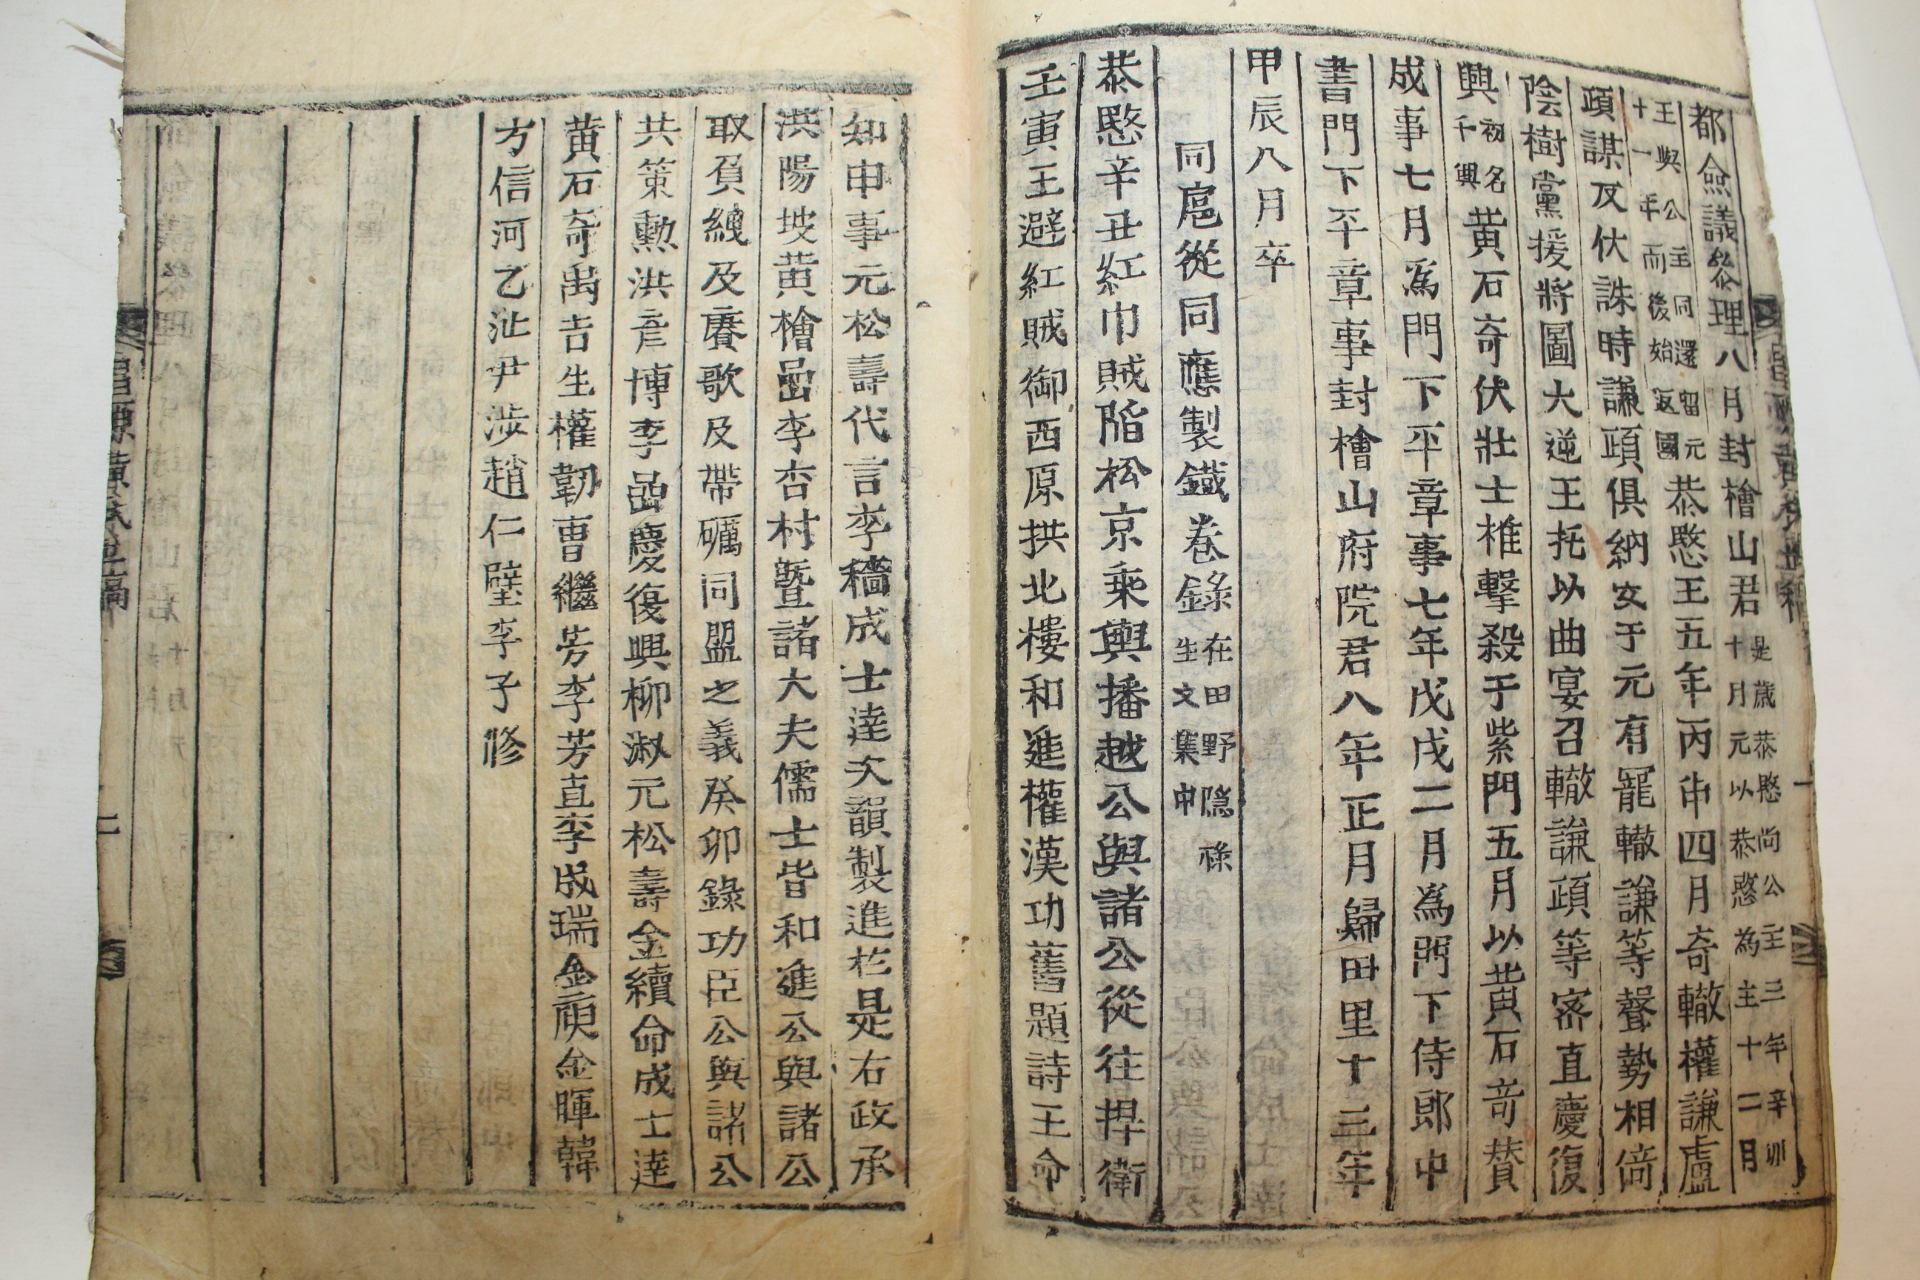 都僉議叅理八月封檜山君是歲恭愍尚公主三年辛卯十月元以恭愍為主十二月
王與公主同還留元十一年而後始返國恭愍王五年丙申四月奇轍權謙盧
頙謀反伏誅時謙頙俱納女于元有寵轍謙等聲勢相倚
陰樹黨援將圖大逆王托以曲宴召轍謙頙等密直慶復
興初名千興黃石奇伏壯士椎擊殺于紫門五月以黃石奇賛
成事七月爲門下平章事七年戊戌二月爲門下侍郎中
書門下平章事封檜山府院君八年正月歸田里十三年
甲辰八月卒
同扈從同應製鐵卷錄在田野隱祿生文集中
恭愍辛丑紅巾賊陷松京乘輿播越公與諸公從往捍衛
壬寅王避紅賊御西原拱北樓和進權漢功舊題詩王命
知申事元松壽代言李穡成士達次韻製進於是右政承
洪陽坡黃檜嵒李杏村曁諸大夫儒士皆和進公與諸公
取負絏及賡歌及帶礪同盟之義癸卯錄功臣公與諸公
共策勳洪彦博李嵒慶復興柳淑元松壽金續命成士達
黃石奇禹吉生權勒曹繼芳李芳直李成瑞金庾金暉韓
方信河乙沚尹涉趙仁璧李子修
昌原黃氏世稿
二